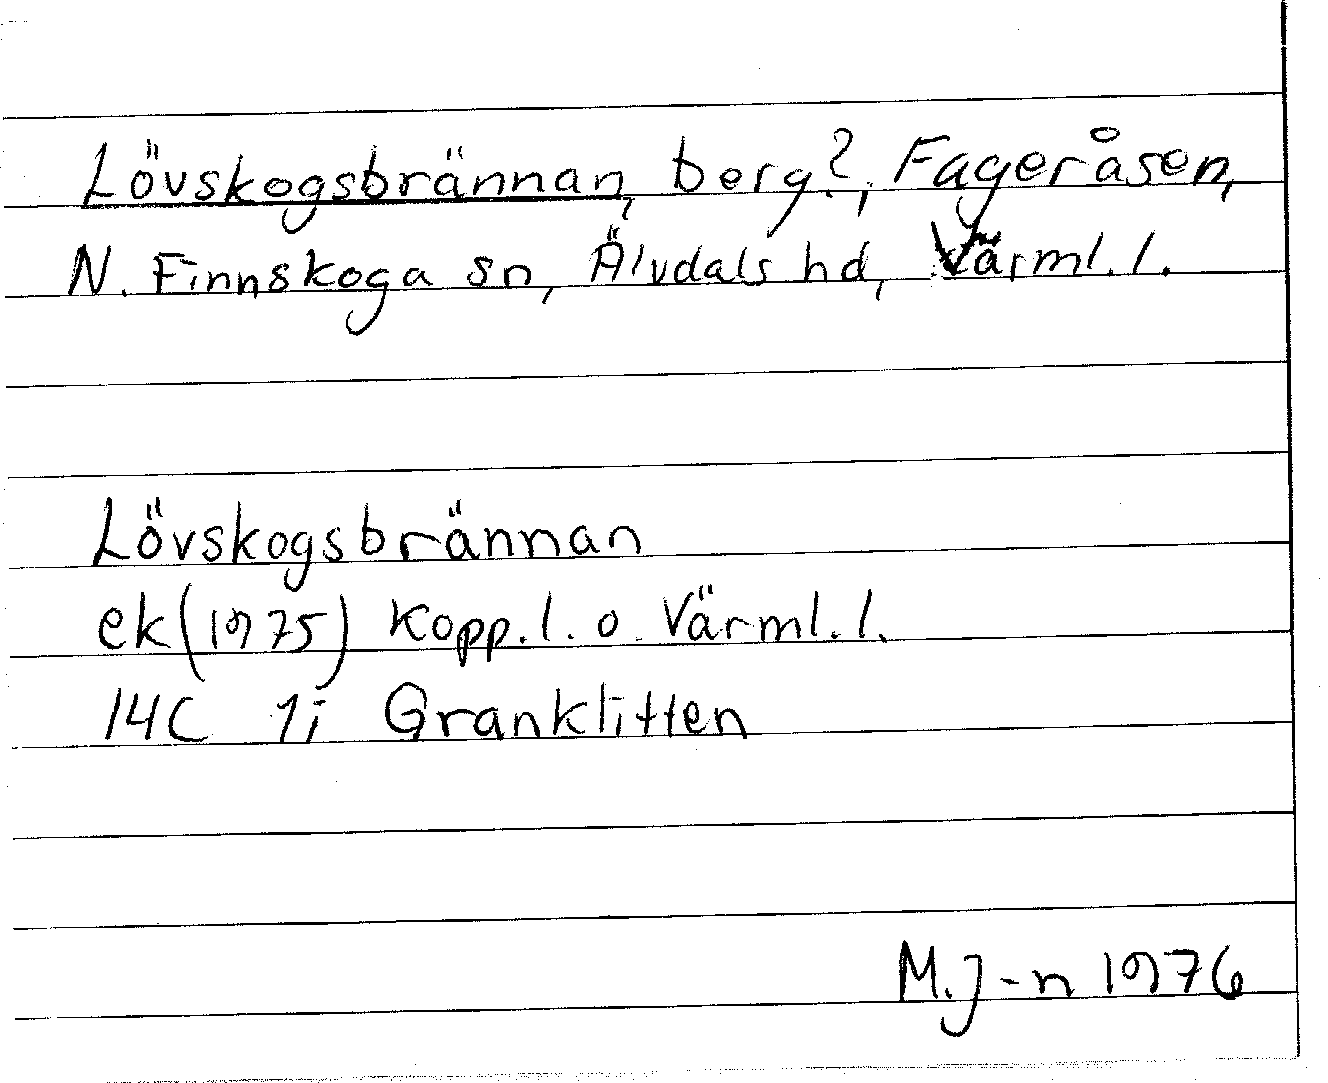 Lövskogsbrännan, berg?, Fageråsen,
N. Finnskoga sn, Älvdals hd, Värml. l.
Lövskogsbrännan
ek (1975) Kopp. l. o. Värml. l.
14C 1i Granklitten
M. J-n 1976